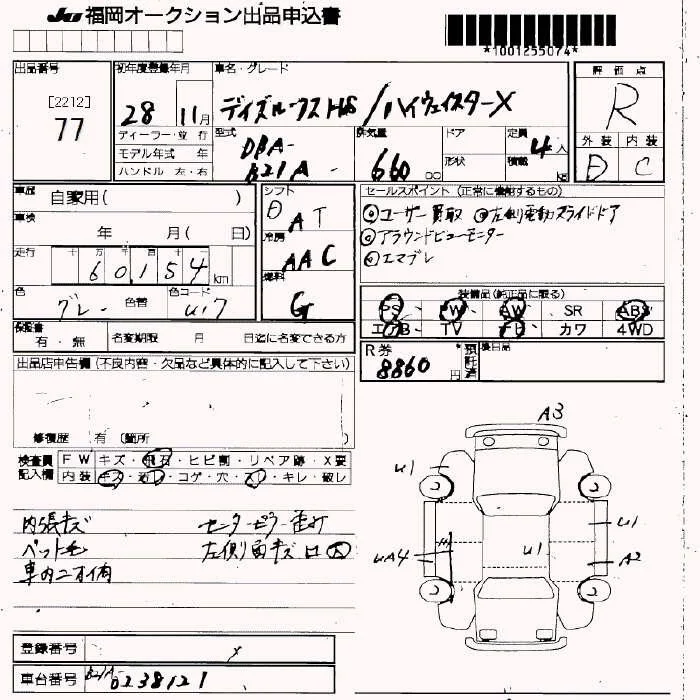 JU 福岡オークション出品申込書
*1001255074*
出品番号
[2212]
77
初年度登録年月
28 11月
ディーラー・並行
モデル年式 年
ハンドル 左・右
車名・グレード
デイズルークス 5HB / ハイウェイスターX
型式
DBA-
B21A
排気量
660 cc
ドア
形状
定員
4人
積載
kg
評価点
R
外装 内装
D C
車歴
自家用( )
車検
年 月( 日)
走行
十 万 千 百 十
60154 km
色
グレー
色替
色コード
シフト
AT
冷房
AAC
燃料
G
セールスポイント (正常に機能するもの)
ユーザー買取 左側電動スライドドア
アラウンドビューモニター
エマブレ
装備品(純正品に限る)
PS PW AW SR ABS
エアB TV ナビ カワ 4WD
R券
8860円
預託済
後日品
保証書
有・無
名変期限 月 日迄に名変できる方
出品店申告欄 (不良内容・欠品など具体的に記入して下さい)
修復歴 有 (箇所
検査員記入欄
FW キズ・飛石・ヒビ割・リペア跡・X要
内装 キズ・汚レ・コゲ・穴・スレ・キレ・破レ
内張キズ センターピラー歪み
ペット毛 左側面キズ凹大
車内ニオイ有
A3
U1
U1
UA4
U1
A2
登録番号
車台番号 B21A-0238121